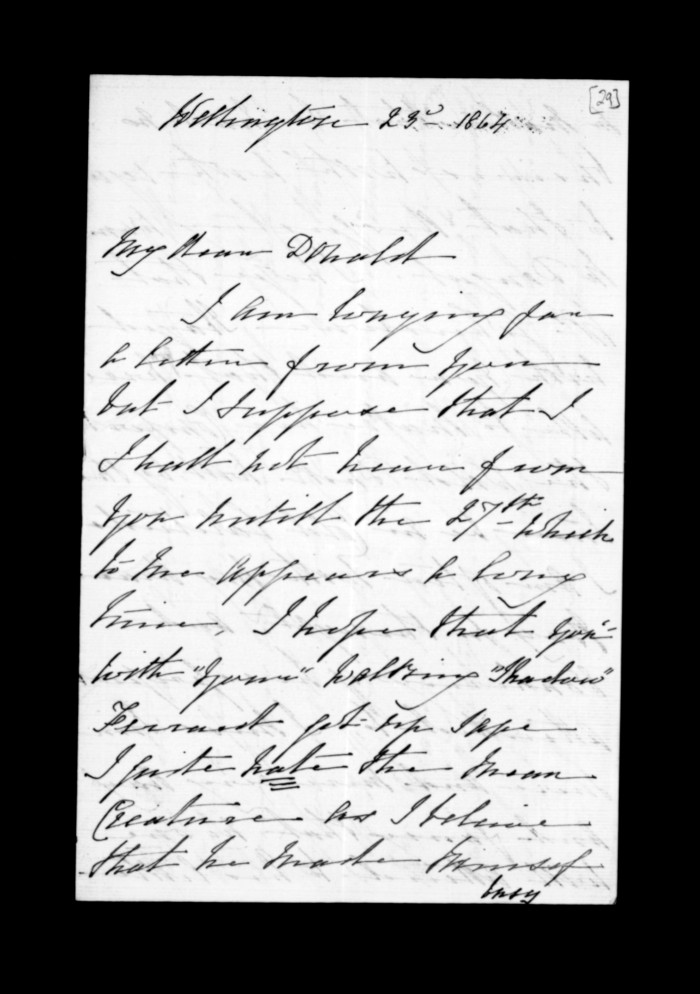 [29]
Wellington 23d 1864
My dear Donald
I am longing for
a letter from you
but I suppose that I
shall not hear from
you untill the 27th which
to me appears a long
time, I hope that you
with "your" walking "Shadow"
get up safe
I quite hate the mean
Creature as I believe
that he made himsef
busy